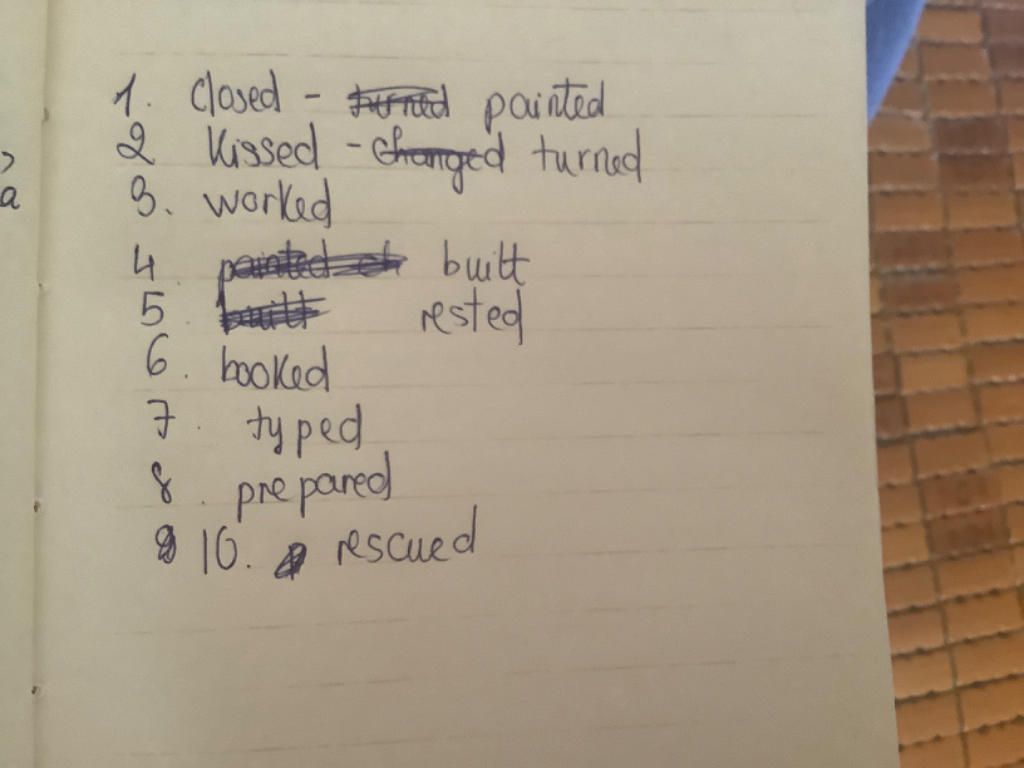 1. closed - turned painted
2 kissed - changed turned
3. worked
4 painted built
5 built rested
6. booked
7. typed
8. prepared
9 10. rescued
a